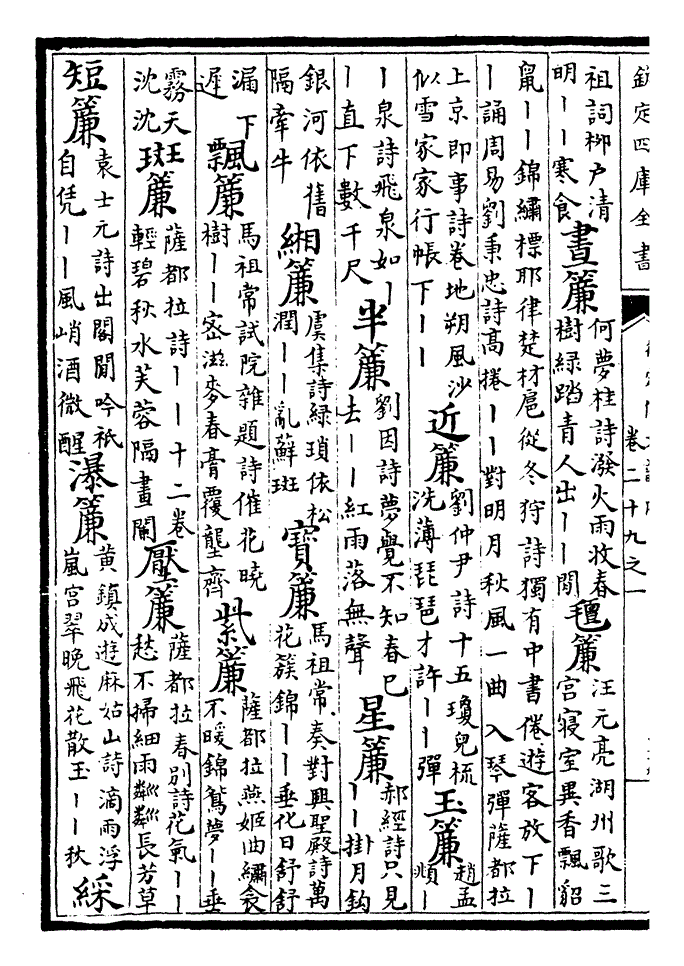 欽定四庫全書
卷二十九之一
祖詞栁户清明丨丨寒食 晝簾 何夢桂詩潑火雨收春樹緑踏青人出丨丨閒 氊簾 汪元亮湖州歌三宫寢室異香飄貂
鼠丨丨錦繡標耶律楚材扈從冬狩詩獨有中書倦遊客放下丨丨誦周易劉秉忠詩髙捲丨丨對明月秋風一曲入琴彈薩都拉
上京即事詩卷地朔風沙似雪家家行帳下丨丨 近簾 劉仲尹詩十五瓊兒梳洗薄琵琶才許丨丨彈 玉簾 趙孟頫丨
丨泉詩飛泉如丨丨直下數千尺 半簾 劉因詩夢覺不知春巳去丨丨紅雨落無聲 星簾 郝經詩只見丨丨掛月鈎
銀河依舊隔牽牛 緗簾 虞集詩緑瑣依松潤丨丨亂蘚斑 寶簾 馬祖常奏對興聖殿詩萬花簇錦丨丨垂化日舒舒
漏下遲 飄簾 馬祖常試院雜題詩催花曉樹丨丨宻滋麥春膏覆壟齊 紫簾 薩都拉燕姬曲繡衾不暖錦鴛夢丨丨垂
霧天沈沈 斑簾 薩都拉詩丨丨十二卷輕碧秋水芙蓉隔畫闌 壓簾 薩都拉春別詩花氣丨丨愁不掃細雨粼粼長芳草
短簾 袁士元詩出閣閒吟袛自凭丨丨風峭酒微醒 瀑簾 黄鎮成遊麻姑山詩滴雨浮嵐宫翠晚飛花散玉丨丨秋 綵